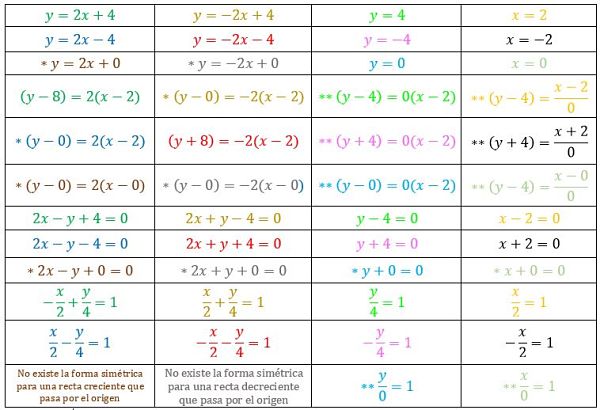 y = 2x + 4 y = −2x + 4 y = 4 x = 2
y = 2x − 4 y = −2x − 4 y = −4 x = −2
* y = 2x + 0 * y = −2x + 0 y = 0 x = 0
(y − 8) = 2(x − 2) * (y − 0) = −2(x − 2) ** (y − 4) = 0(x − 2) ** (y − 4) = (x − 2)/0
* (y − 0) = 2(x − 2) (y + 8) = −2(x − 2) ** (y + 4) = 0(x − 2) ** (y + 4) = (x + 2)/0
* (y − 0) = 2(x − 0) * (y − 0) = −2(x − 0) ** (y − 0) = 0(x − 2) ** (y − 4) = (x − 0)/0
2x − y + 4 = 0 2x + y − 4 = 0 y − 4 = 0 x − 2 = 0
2x − y − 4 = 0 2x + y + 4 = 0 y + 4 = 0 x + 2 = 0
* 2x − y + 0 = 0 * 2x + y + 0 = 0 * y + 0 = 0 * x + 0 = 0
−x/2 + y/4 = 1 x/2 + y/4 = 1 y/4 = 1 x/2 = 1
x/2 − y/4 = 1 −x/2 − y/4 = 1 −y/4 = 1 −x/2 = 1
No existe la forma simétrica
para una recta creciente que
pasa por el origen
No existe la forma simétrica
para una recta decreciente
que pasa por el origen
** y/0 = 1 ** x/0 = 1